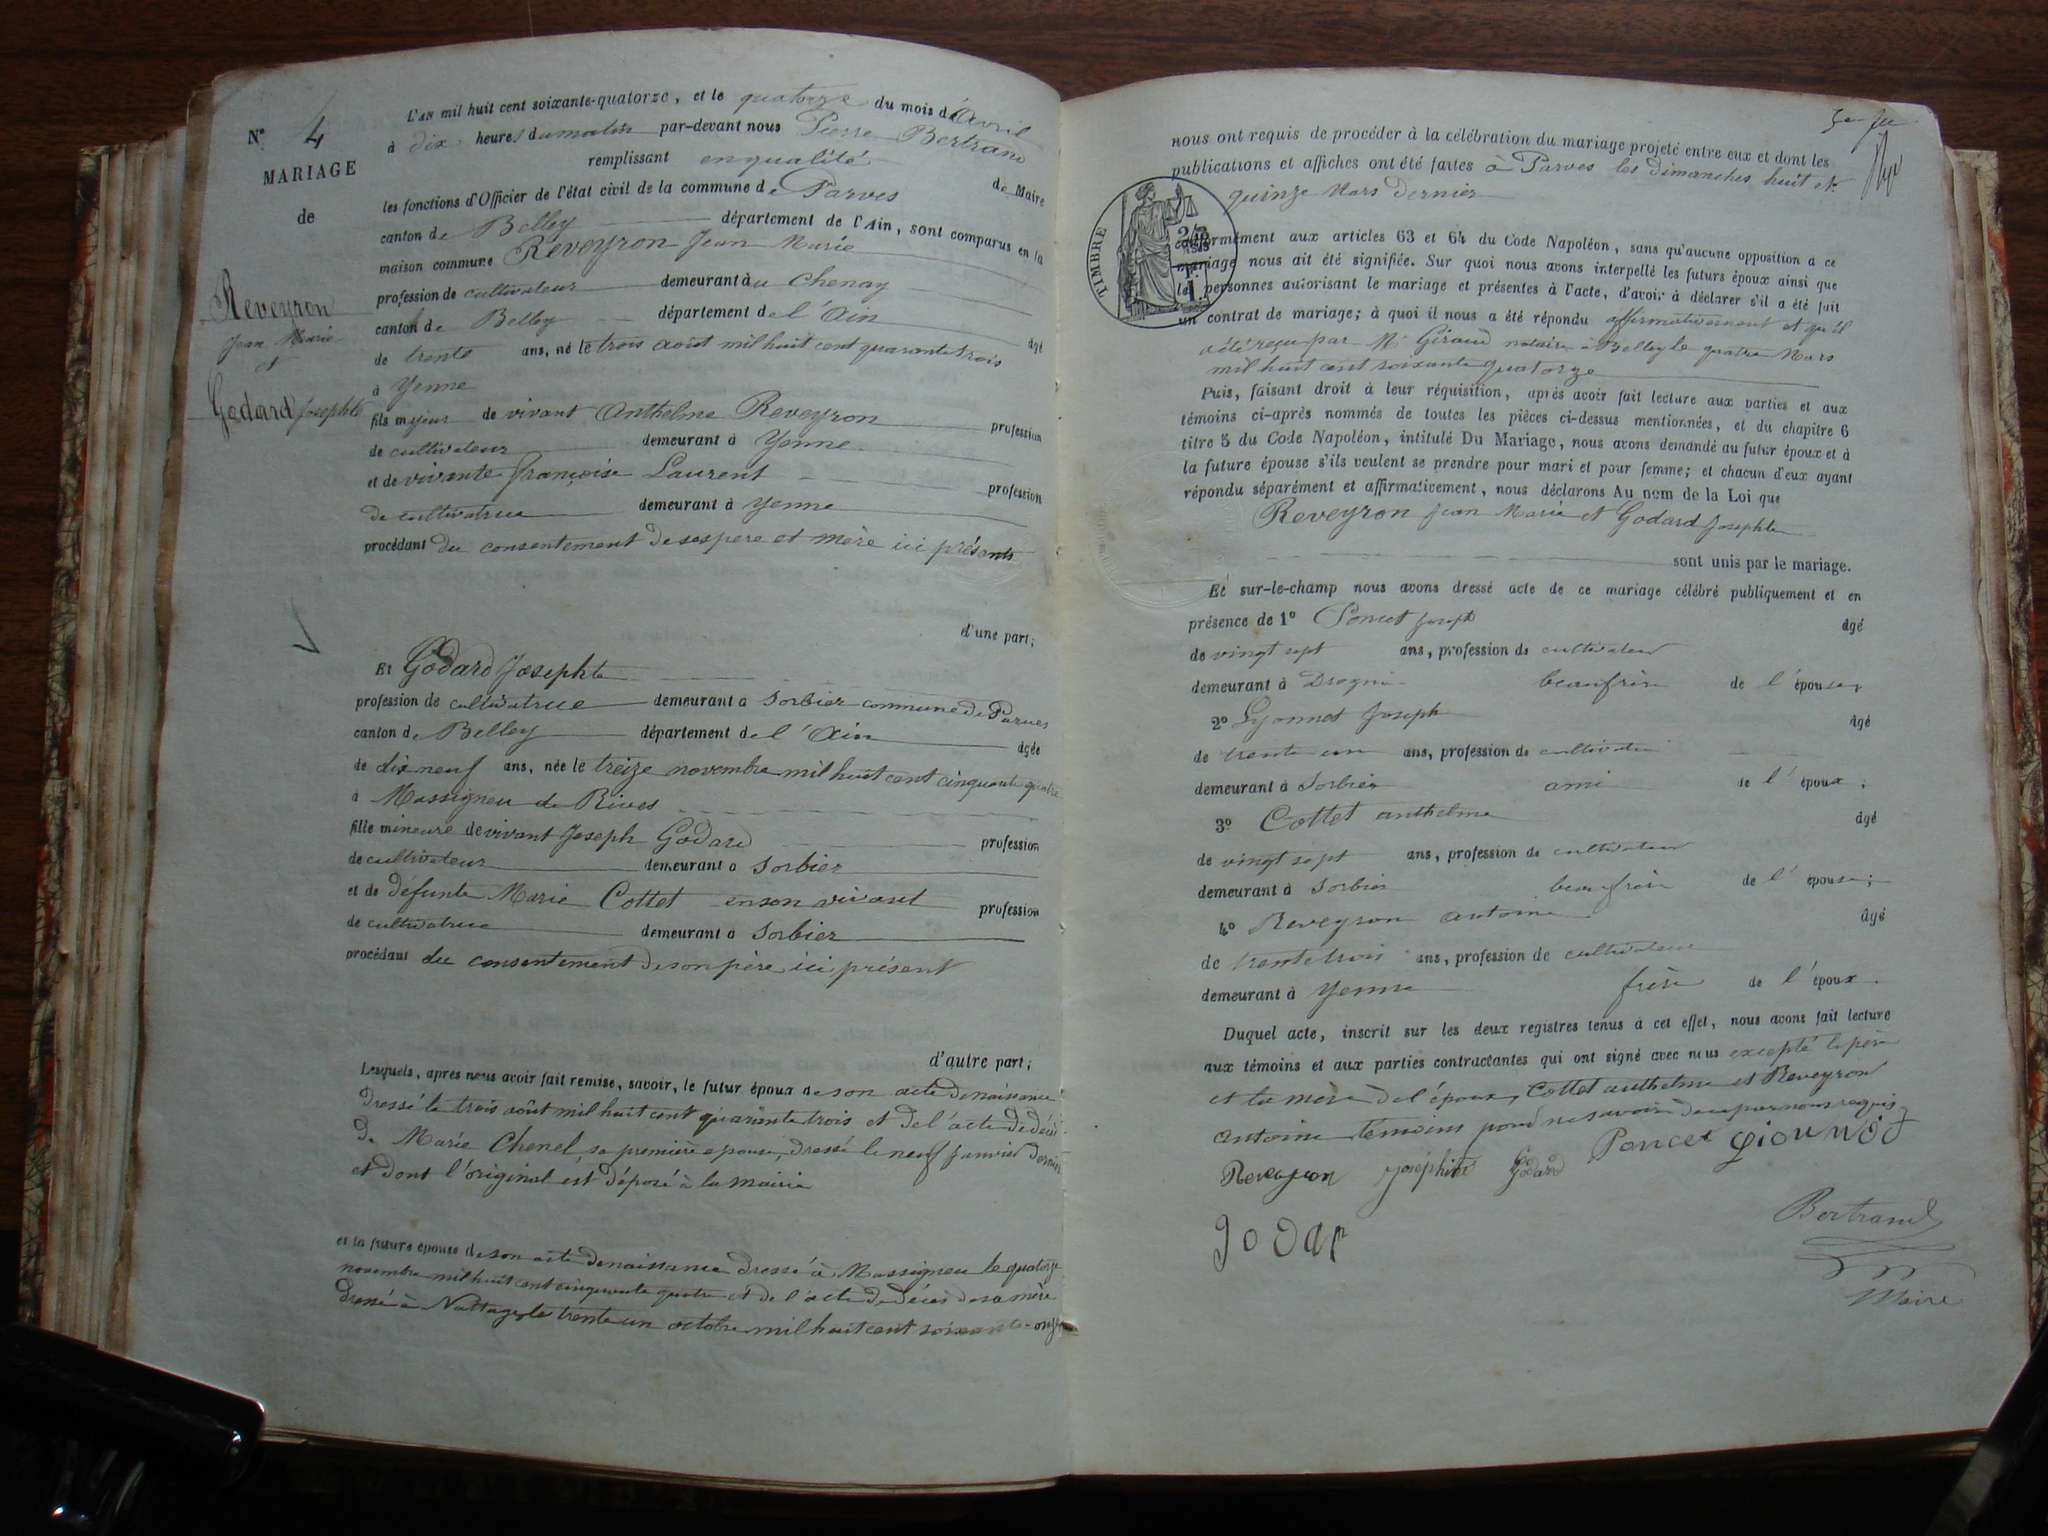 N° 4
MARIAGE
de
Reveyron
Jean Marie
et
Godard Josephte
L'AN mil huit cent soixante-quatorze, et le quatorze du mois d'Avril
à dix heures du matin par-devant nous Pierre Bertrand
remplissant en qualité de Maire
les fonctions d'Officier de l'état civil de la commune de Parves
canton de Belley département de l'Ain, sont comparus en la
maison commune Reveyron Jean Marie
profession de cultivateur demeurant au Chenay
canton de Belley département de l'Ain âgé
de trente ans, né le trois août mil huit cent quarante trois
à Yenne
fils majeur de vivant Anthelme Reveyron profession
de cultivateur demeurant à Yenne
et de vivante françoise Laurent profession
de cultivatrice demeurant à Yenne
procédant du consentement de ses père et mère ici présents
d'une part;
Et Godard Josephte
profession de cultivatrice demeurant à Sorbier commune de Parves
canton de Belley département de l'Ain âgée
de dix neuf ans, née le treize novembre mil huit cent cinquante quatre
à Massigneu de Rives
fille mineure de vivant Joseph Godard profession
de cultivateur demeurant à Sorbier
et de défunte Marie Cottet en son vivant profession
de cultivatrice demeurant à Sorbier
procédant du consentement de son père ici présent
d'autre part;
Lesquels, après nous avoir fait remise, savoir, le futur époux de son acte de naissance
dressé le trois août mil huit cent quarante trois et de l'acte de décès
de Marie Chenel, sa première epouse, dressé le neuf Janvier dernier
et dont l'original est déposé à la mairie
et la future épouse de son acte de naissance dressé à Massigneu le quatorze
novembre mil huit cent cinquante quatre et de l'acte de décès de sa mère
dressé à Nattages le trente un octobre mil huit cent soixante-onze
nous ont requis de procéder à la célébration du mariage projeté entre eux et dont les
publications et affiches ont été faites à Parves les dimanches huit et
quinze Mars dernier
TIMBRE
conformément aux articles 63 et 64 du Code Napoléon, sans qu'aucune opposition à ce
mariage nous ait été signifiée. Sur quoi nous avons interpellé les futurs époux ainsi que
les personnes autorisant le mariage et présentes à l'acte, d'avoir à déclarer s'il a été fait
un contrat de mariage; à quoi il nous a été répondu affirmativement et qu'il
a été reçu par Me Giraud notaire à Belley le quatre Mars
mil huit cent soixante quatorze
Puis, faisant droit à leur réquisition, après avoir fait lecture aux parties et aux
témoins ci-après nommés de toutes les pièces ci-dessus mentionnées, et du chapitre 6
titre 5 du Code Napoléon, intitulé Du Mariage, nous avons demandé au futur époux et à
la future épouse s'ils veulent se prendre pour mari et pour femme; et chacun d'eux ayant
répondu séparément et affirmativement, nous déclarons Au nom de la Loi que
Reveyron Jean Marie et Godard Josephte
sont unis par le mariage.
Et sur-le-champ nous avons dressé acte de ce mariage célébré publiquement et en
présence de 1° Poncet Joseph âgé
de vingt sept ans, profession de cultivateur
demeurant à beaufrère de l'épouse,
2° Lyonnet Joseph âgé
de trente un ans, profession de cultivateur
demeurant à Sorbier ami de l'époux;
3° Cottet anthelme âgé
de vingt sept ans, profession de cultivateur
demeurant à Sorbier beaufrère de l'épouse;
4° Reveyron antoine âgé
de trente trois ans, profession de cultivateur
demeurant à Yenne frère de l'époux.
Duquel acte, inscrit sur les deux registres tenus à cet effet, nous avons fait lecture
aux témoins et aux parties contractantes qui ont signé avec nous excepté le père
et la mère de l'époux, Cottet anthelme et Reveyron
antoine témoins pour ne savoir de ce par nous requis
Poncet
Reveyron Joséphine Godard
godar
Bertrand
Maire